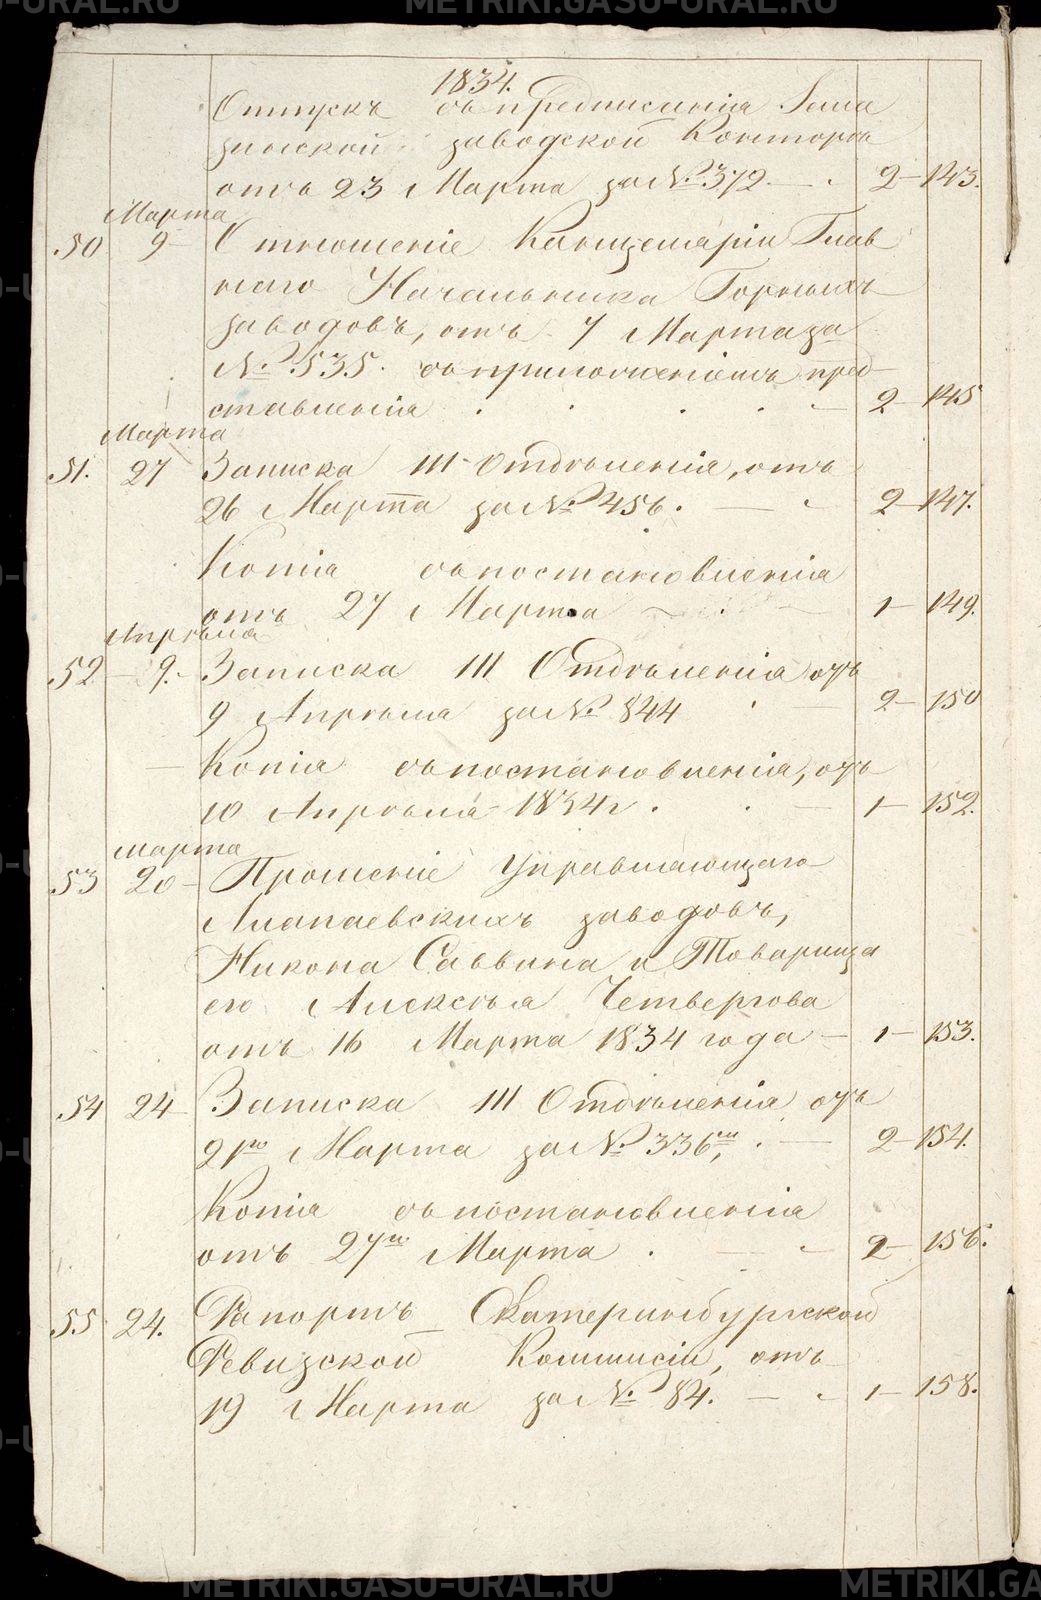 METRIKI.GASU-URAL.RU
1834.
Отпускъ съ предписанія
заводской Конторѣ
отъ 23 Марта за № 372. — 2 — 143.
Марта
50 9 — Отношеніе Канцеляріи Глав
наго Начальника Горныхъ
заводовъ, отъ 7 Марта за
№ 535. съ приложеніемъ пред-
ставленія . . . . — 2 — 145
Марта
51. 27 Записка III Отдѣленія, отъ
26 Марта за № 456. — 2 — 147.
Копія съ постановленія
отъ 27 Марта — 1 — 149.
Апрѣля
52 — 9. — Записка III Отдѣленія отъ
9 Апрѣля за № 844 — 2 — 150
— Копія съ постановленія, отъ
10 Апрѣля 1834 г. — 1 — 152.
Марта
53 20 — Прошеніе Управляющаго
Алапаевскихъ заводовъ,
Никона Саввина и Товарища
его Алексѣя Четвергова
отъ 16 Марта 1834 года — 1 — 153.
54 24 — Записка III Отдѣленія отъ
21го Марта за № 336мъ, . — 2 — 154.
Копія съ постановленія
отъ 27го Марта . — 2 — 156.
55 24. Рапортъ Екатеринбургской
Ревизской Коммисіи, отъ
19 Марта за № 84. — 1 — 158.
METRIKI.GASU-URAL.RU